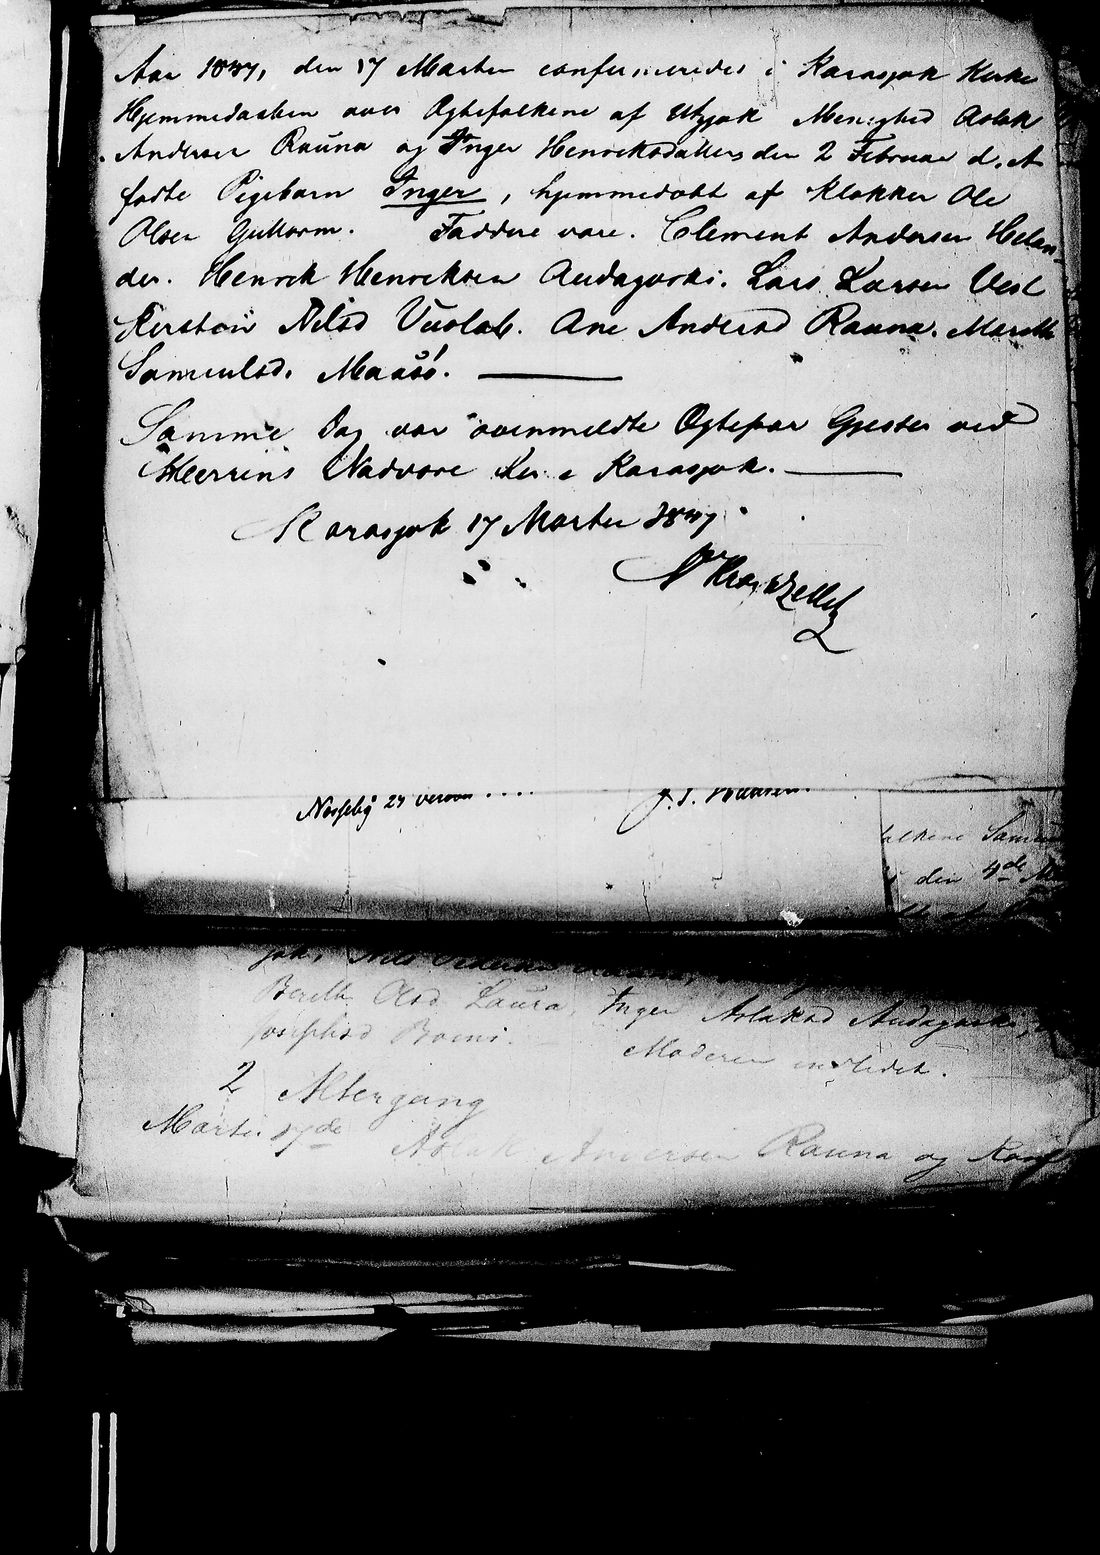 Aar 1847, den 17 Marten confirmeredes i Karasjok Kirke
Hjemmedaaben over Ægtefolkene af Utsjok Menighed Aslak
Andersen Rauna og Inger Henriksdatters den 2 Februar d. A
fødte Pigebarn Inger, hjemmedøbt af Klokker Ole
Olsen Guttorm. Faddere vare. Clement Andersen Helan-
der. Henrik Henriksen Audagoski. Lars Larsen Vest
Kirsten Nilsd Vuolab. Ane Andersd Rauna. Marethe
Samuelsd. Maasø.
Samme Dag var ovenmeldte Ægtepar Gjester ved
Herrens Nadvere her i Karasjok.
Karasjok 17 Marten 1847
Nesseby 24
alkene
den 4de
Nils
Bereth Olsd. Laura, Inger Aslaksd Audagoski,
Josephsd
Moderen indledet.
2 Altergang
Marten 17de
Aslak Andersen Rauna og